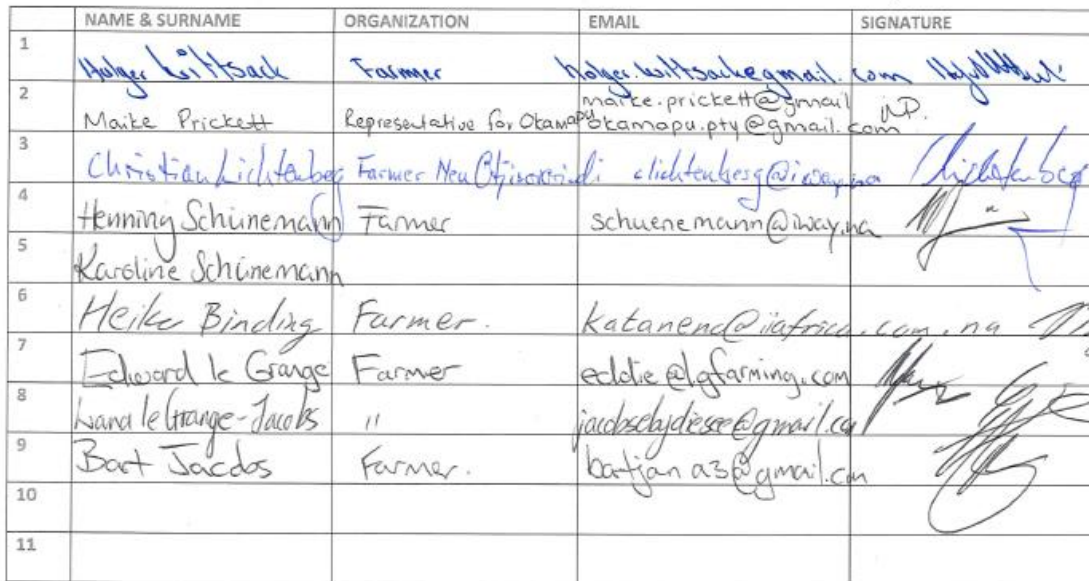 NAME & SURNAME ORGANIZATION EMAIL SIGNATURE
1 Holger Wittsack Farmer holger.wittsack@gmail.com
2 Maike Prickett Representative for Okamapu maike.prickett@gmail
okamapu.pty@gmail.com
3 Christian Lichtenberg Farmer Neu clichtenberg@iway.na
4 Henning Schünemann Farmer schuenemann@iway.na
5 Karoline Schünemann
6 Heiko Binding Farmer. @iafrica.com.na
7 Edward le Grange Farmer eddie@lgfarming.com
8 le Grange-Jacobs "
9 Bart Jacobs Farmer. bartjana3@gmail.com
10
11